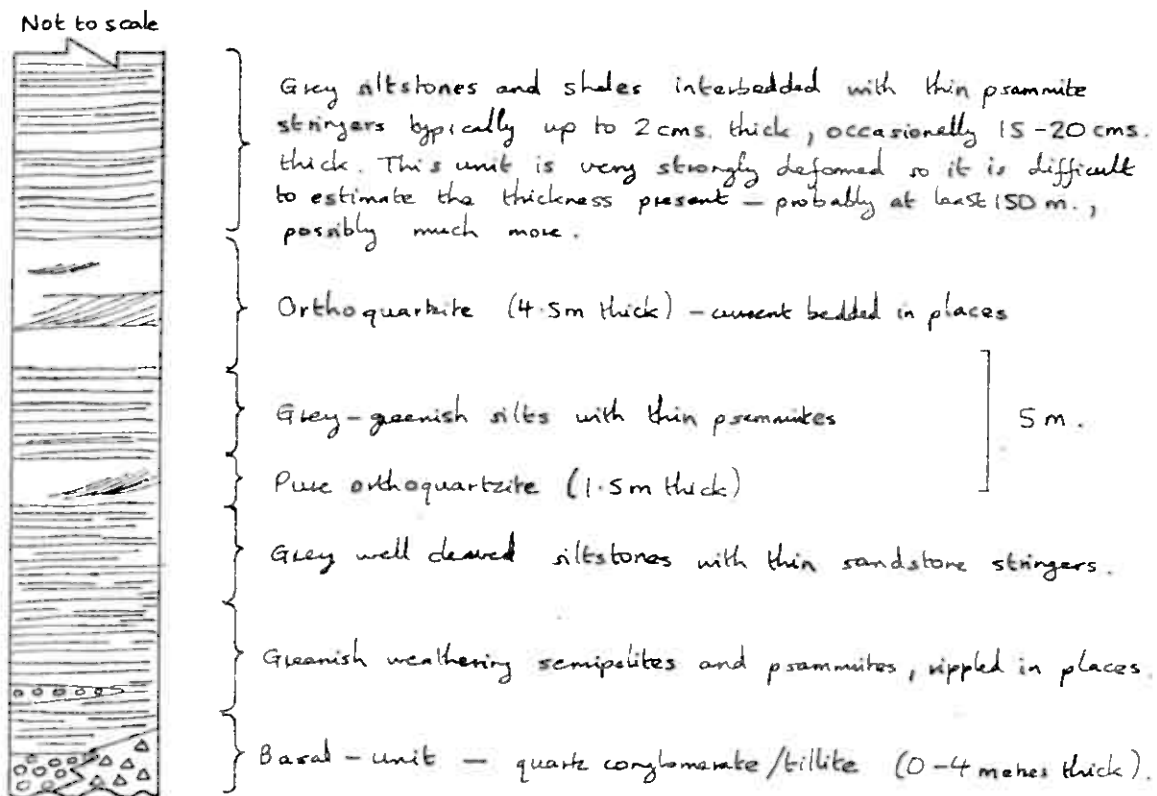 Not to scale
Grey siltstones and shales interbedded with thin psammite
stringers typically up to 2 cms. thick, occasionally 15-20 cms.
thick. This unit is very strongly deformed so it is difficult
to estimate the thickness present – probably at least 150 m.,
possibly much more.
Orthoquartzite (4.5m thick) – current bedded in places
Grey-greenish silts with thin psammites
5 m.
Pure orthoquartzite (1.5m thick)
Grey well cleaved siltstones with thin sandstone stringers.
Greenish weathering semipelites and psammites, rippled in places.
Basal-unit – quartz conglomerate/tillite (0-4 metres thick).